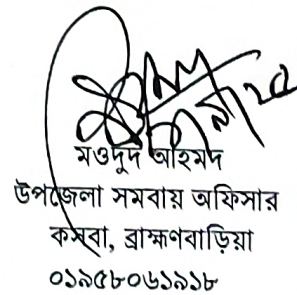 মওদুদ আহমদ
উপজেলা সমবায় অফিসার
কসবা, ব্রাহ্মণবাড়িয়া
০১৯৫৮০৬১৯১৮